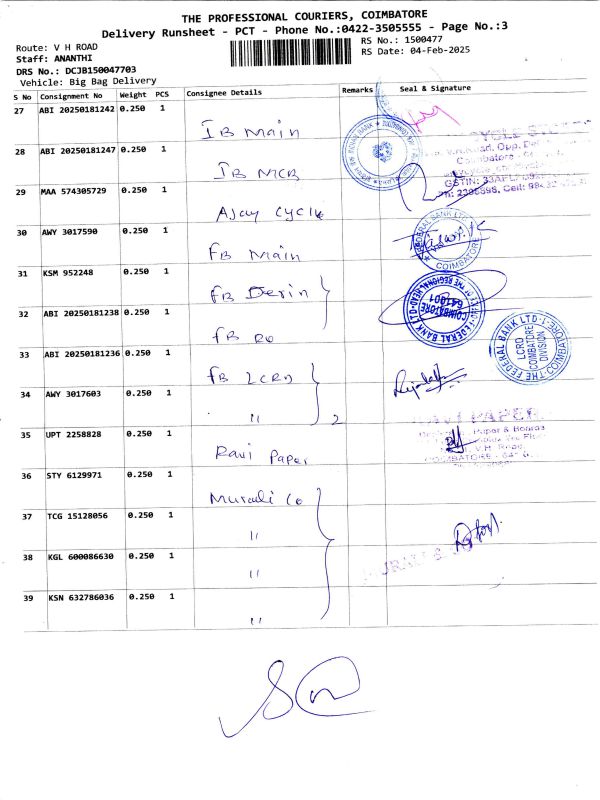 THE PROFESSIONAL COURIERS, COIMBATORE
Delivery Runsheet - PCT - Phone No.:0422-3505555 - Page No.:3
Route: V H ROAD
RS No.: 1500477
Staff: ANANTHI
RS Date: 04-Feb-2025
DRS No.: DCJB150047703
Vehicle: Big Bag Delivery
S No Consignment No Weight PCS Consignee Details Remarks Seal & Signature
27 ABI 20250181242 0.250 1
IB Main
28 ABI 20250181247 0.250 1
IB MCB
29 MAA 574305729 0.250 1
Ajay Cycle
30 AWY 3017590 0.250 1
FB Main
31 KSM 952248 0.250 1
FB
32 ABI 20250181238 0.250 1
FB RO
33 ABI 20250181236 0.250 1
FB LCRD
34 AWY 3017603 0.250 1
" 2
35 UPT 2258828 0.250 1
Ravi Paper
36 STY 6129971 0.250 1
Murali Co
37 TCG 15128056 0.250 1
"
38 KGL 600086630 0.250 1
"
39 KSN 632786036 0.250 1
"
FEDERAL BANK LTD
COIMBATORE
COIMBATORE
641001
THE FEDERAL BANK LTD
LCRD
COIMBATORE
DIVISION
PAPER
V.H. Road